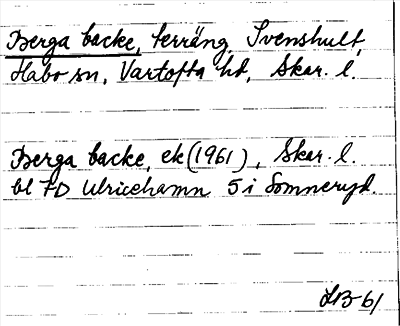 Berga backe, terräng, Svenshult,
Habo sn, Vartofta hd, Skar. l.
Berga backe, ek (1961), Skar. l.
bl 7D Ulricehamn 5 i Somneryd.
LB 61